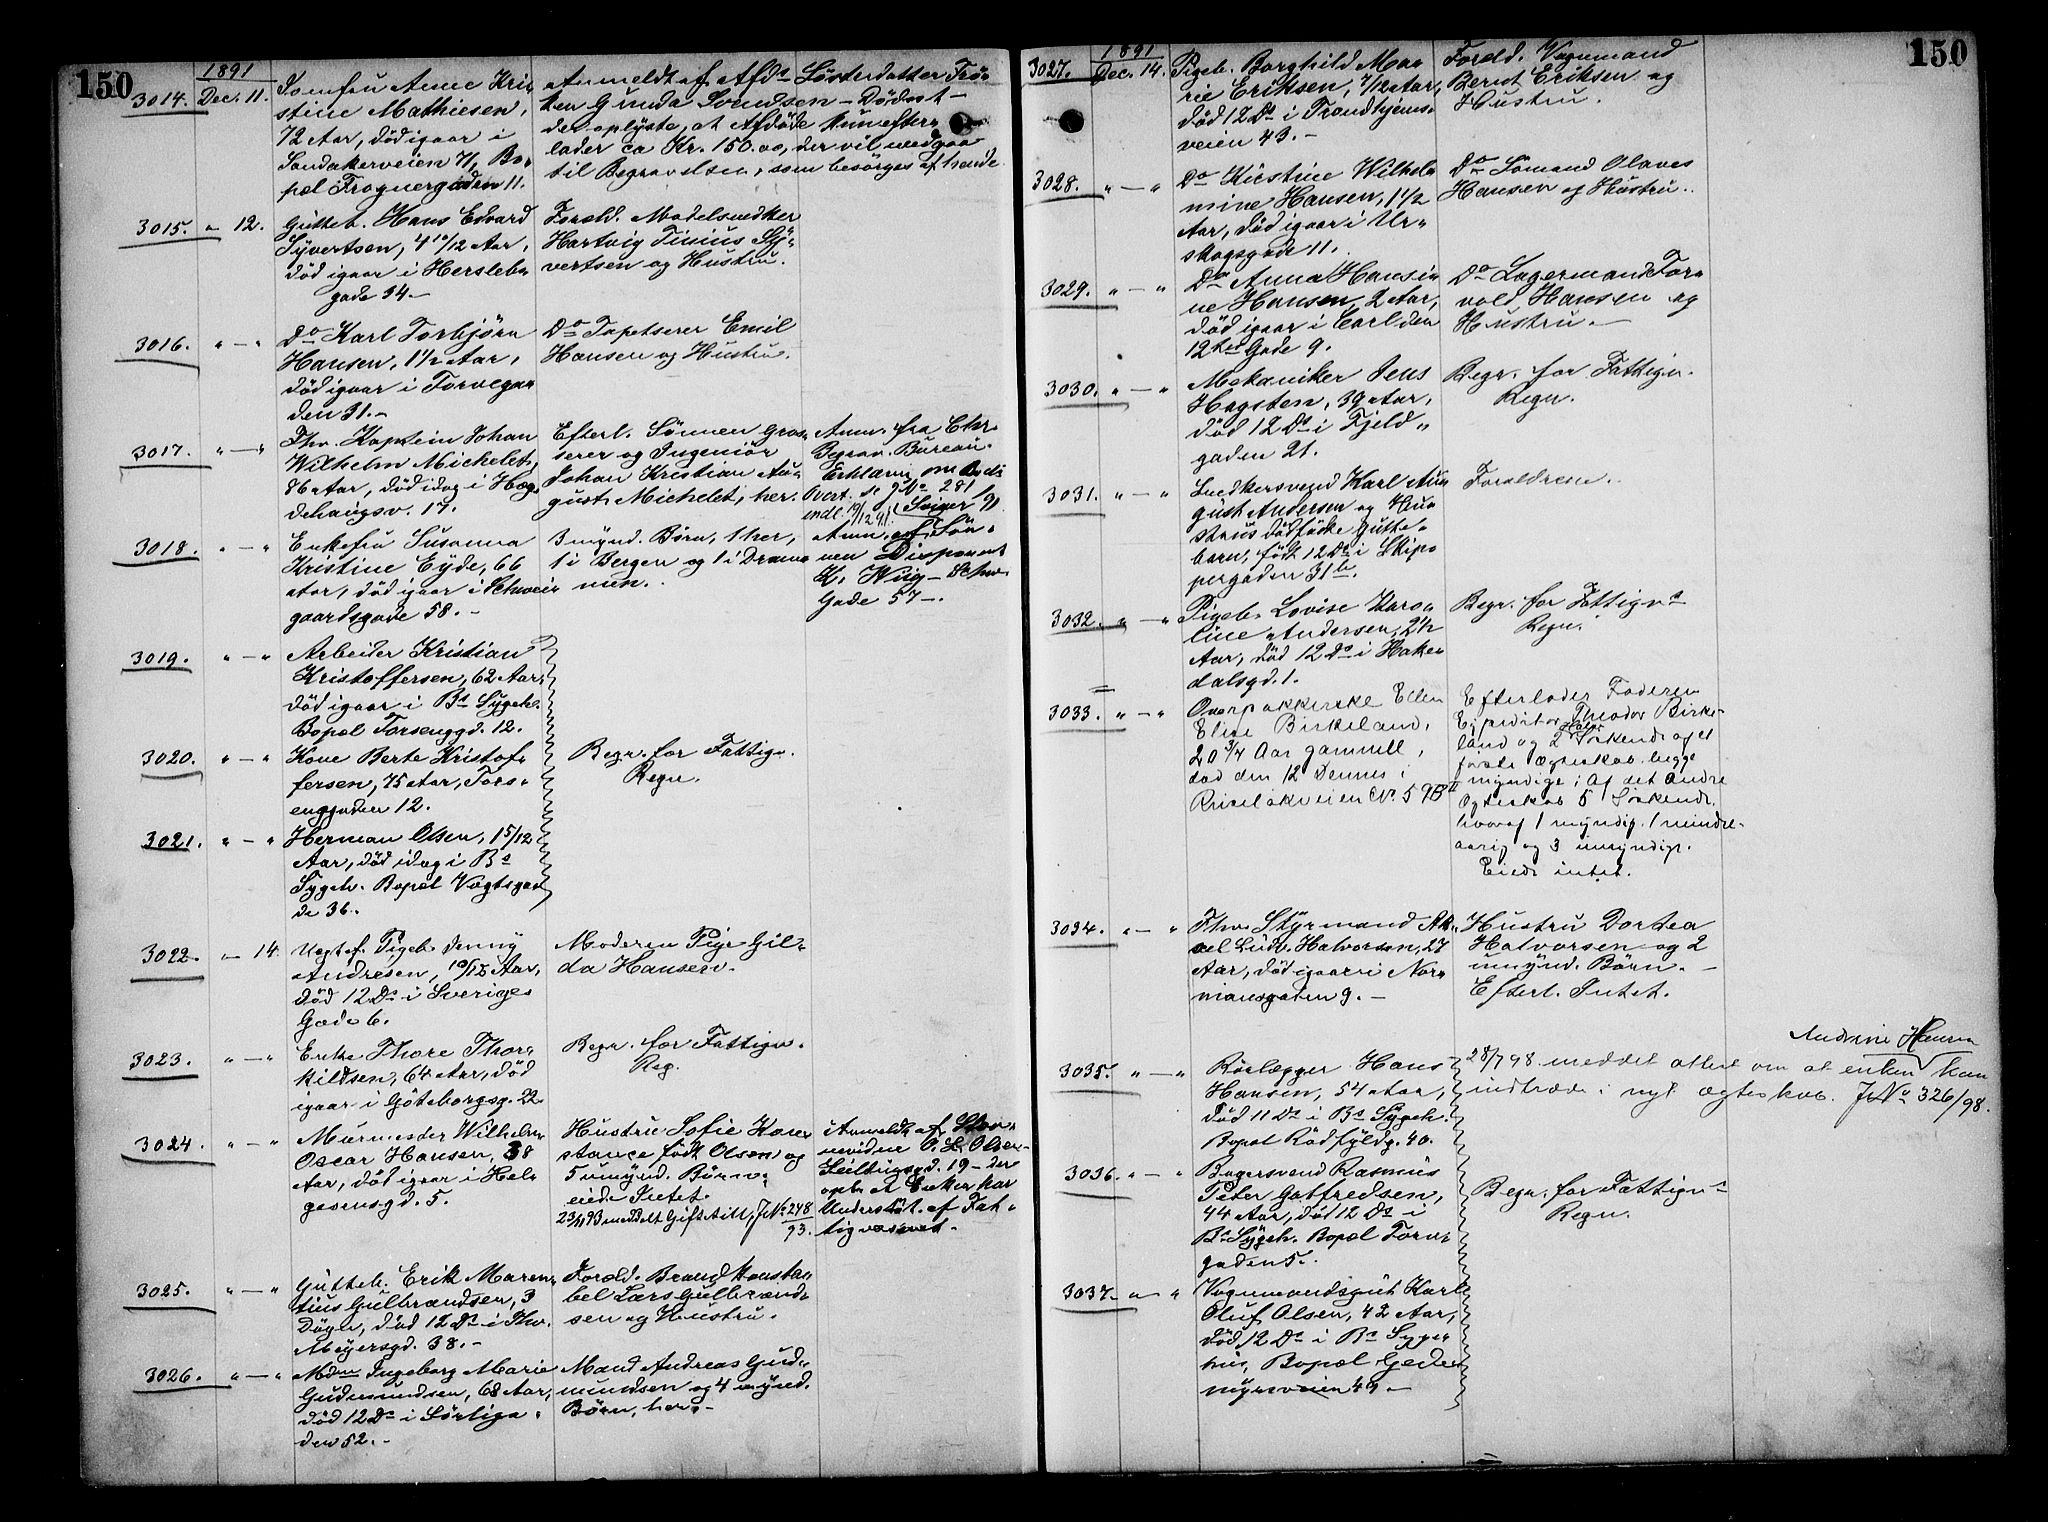 150
1891
3014. Dec. 11. Jomfru Anne Kri-
stine Mathiesen,
72 Aar, död igaar i
Sandakerveien 71, Bo-
pæl Frognergaden 11.
Anmeldt af Afds Sösterdatter Frö-
ken Gunda Svendsen – Dödsat-
der oplyste, at Afdöde kun efter-
lader ca Kr. 150.00, der vil medgaa
til Begravelsen, som besörges af hende
3015. " 12. Gutteb. Hans Edvard
Syvertsen, 4 10/12 Aar,
död igaar i Herslebs
gade 34.–
Foræld. Modelsnedker
Hartvig Tinius Sy-
vertsen og Hustru.
3016. " – " Do Karl Torbjörn
Hansen, 1 1/2 Aar,
död igaar i Torvega-
den 31.–
Do Tapetserer Emil
Hansen og Hustru.
3017. " – " Fhv. Kaptein Johan
Wilhelm Michelet,
86 Aar, död idag i Hæg-
dehaugsv. 17.
Efterl. Sönnen Gros-
serer og Ingeniör
Johan Kristian Au-
gust Michelet, her.
Anm. fra Chr.
Begrav. Bureau.
Erklæring om
281
3018. " – " Enkefru Susanna
Kristine Eyde, 66
Aar, död igaar i Schwei-
gaardsgade 58.–
3 mynd. Börn, 1 her,
1 i Bergen og 1 i Dram-
men.
Anm. af Sön-
nen Disponent
K. Wiig – Schw.
Gade 57 –.
3019. " – " Arbeider Kristian
Kristoffersen, 62 Aar,
död igaar i Bs Sygeh.
Bopæl Torsenggd. 12.
3020. " – " Kone Berte Kristof-
fersen, 75 Aar, Tors-
enggaden 12.
Begr. for Fattigv.
Regn.
3021. " – " Herman Olsen, 1 5/12
Aar, död idag i Bs
Sygeh. Bopæl Vogtsga-
de 36.
3022. " 14. Uægtef. Pigeb. Jenny
Andresen, 10/12 Aar,
död 12 Ds i Sveriges
Gade 6.
Moderen Pige Gil-
da Hansen.
3023. " – " Enke Thore Thor-
kildsen, 64 Aar, död
igaar i Göteborgsg. 22
Begr. for Fattigv.
Reg.
3024. " – " Murmester Wilhelm
Oscar Hansen, 38
Aar, död igaar i Hel-
gesensgd. 5.
Hustru Sofie Kon-
stance födt Olsen og
5 umynd. Börn,
eiede Intet.
meddelt Giftatt. J No 248
93.
Anmeldt af
O. L. Olsen
19 – der
opl. at Enken har
Understöt. af Fat-
tigvæsenet.
3025. " – " Gutteb. Erik Maren-
tius Gulbrandsen, 3
Dögn, död 12 Ds i Thv.
Meyersgd. 38.–
Foræld. Brandkonsta-
bel Lars Gulbrand-
sen og Hustru.
3026. " – " Mdm Ingeborg Marie
Gudmundsen, 68 Aar,
död 12 Ds i Sörliga-
den 52.–
Mand Andreas Gud-
mundsen og 4 mynd.
Börn, her.–
150
1891
3027. Dec. 14. Pigeb. Borghild Ma-
rie Eriksen, 7/12 Aar,
död 12 Ds i Trondhjems-
veien 43.–
Foræld. Vognmand
Bernt Eriksen og
Hustru.
3028. " – " Do Kirstine Wilhel-
mine Hansen, 1 1/2
Aar, död igaar i Ur-
skogsgade 11.
Do Sömand Olaves
Hansen og Hustru.
3029. " – " Do Anna Hansi-
ne Hansen, 2 Aar,
död igaar i Carl den
12tes Gade 9.
Do Lagermand Tor-
vald Hansen og
Hustru.–
3030. " – " Mekaniker Jens
Hagsten, 39 Aar,
död 12 Ds i Fjeld-
gaden 21.
Begr. for Fattigv.
Regn.
3031. " – " Snedkersvend Karl Au-
gust Andersen og Hu-
strus dödfödte Gutte-
barn, födt 12 Ds i Skip-
pergaden 31 b.
Forældrene.
3032. " – " Pigeb. Lovise Karo-
line Andersen, 2 1/2
Aar, död 12 Ds i Haken-
dalsgd. 1.
Begr. for Fattigvs
Regn.
3033. " – " Ellen
Elise Birkeland,
20 3/4 Aar gammell,
död den 12 Dennes i
No 59 B II
Efterlader Faderen
Expeditör Theodor Birke-
land og 2 Söskende af et
förste Ægteskab, begge
myndige; Af det andre
Ægteskab 5 Söskende,
hvoraf 1 myndig, 1 mindre-
aarig og 3 umyndige.
Eiede intet.
3034. " – " Fhv Styrmand Ak-
sel Ludv. Halvorsen, 27
Aar, död igaar i Nor-
mansgaten 9.–
Hustru Dortea
Halvorsen og 2
umynd. Börn.–
Efterl. Intet.
3035. " – " Rörlægger Hans
Hansen, 54 Aar,
död 11 Ds i Bs Sygeh.
Bopæl Rödfyldg. 40.
Andrine Hansen
28/7 98 meddelt attest om at enken kan
indtræde i nyt ægteskab. J No 326/98.
3036. " – " Bagersvend Rasmus
Peter Gotfredsen,
44 Aar, död 12 Ds i
Bs Sygeh. Bopæl Torv-
gaden 5.
Begr. for Fattigvs
Regn.
3037. " – " Vognmandsgut Karl
Oluf Olsen, 42 Aar,
död 12 Ds i Bs Syge-
hus, Bopæl Gede-
myrsveien 49.–